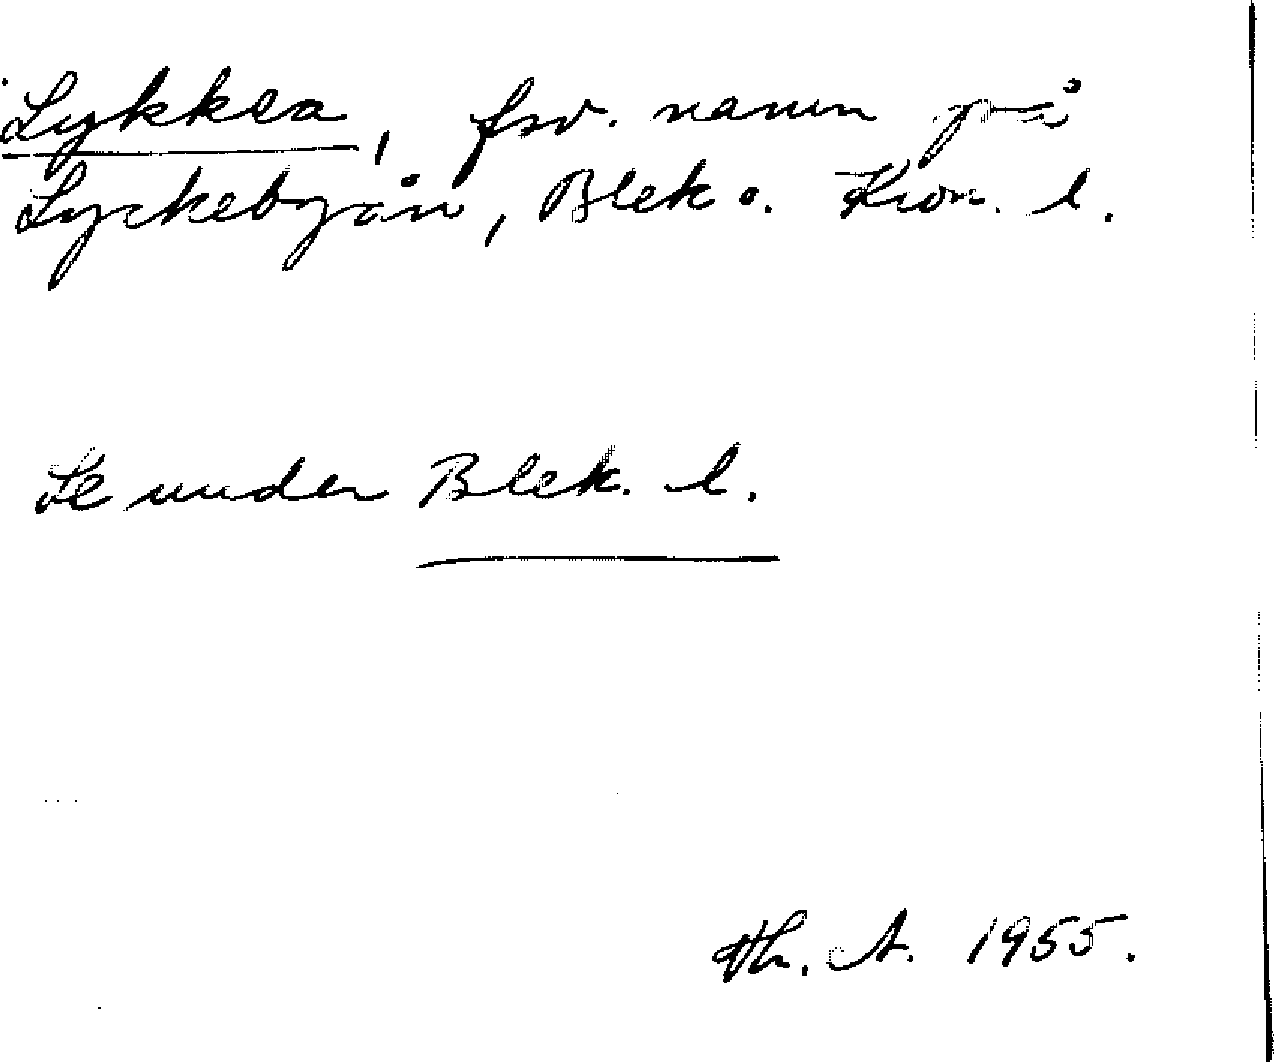 Lykkea, fsv. namn på
Lyckebyån, Blek o. Kron. l.
Se under Blek. l.
Th. A. 1955.